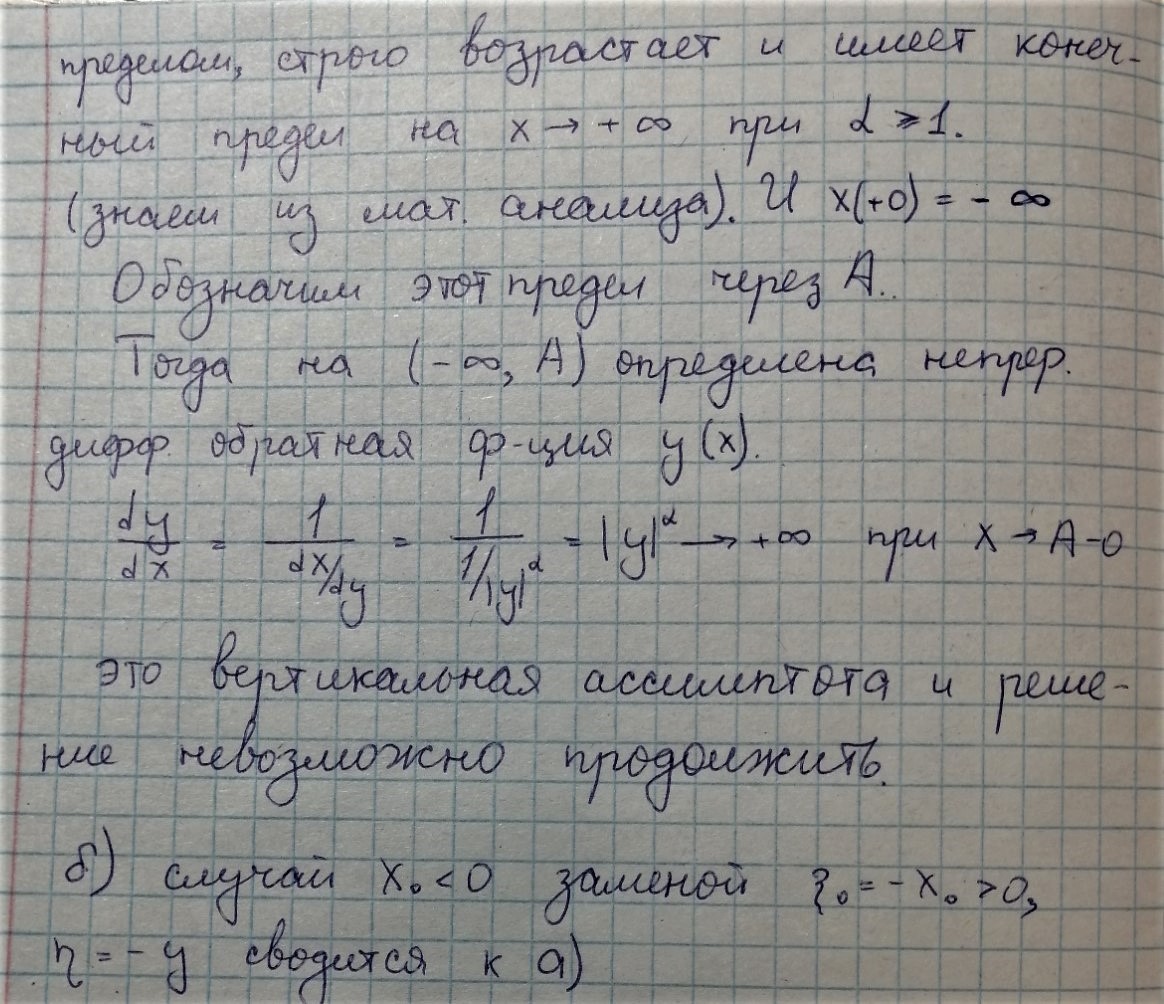 пределом, строго возрастает и имеет конеч-
ный предел на x → + ∞ при α ⩾ 1.
(знаем из мат. анализа). И x(+0) = - ∞
Обозначим этот предел через A.
Тогда на (-∞, A) определена непрер.
дифф. обратная ф-ция y(x).
dy/dx = 1/(dx/dy) = 1/(1/|y|^α) = |y|^α → +∞ при x → A-0
это вертикальная ассимптота и реше-
ние невозможно продолжить.
б) случай x₀ < 0 заменой ξ₀ = -x₀ > 0,
η = - y сводится к а)